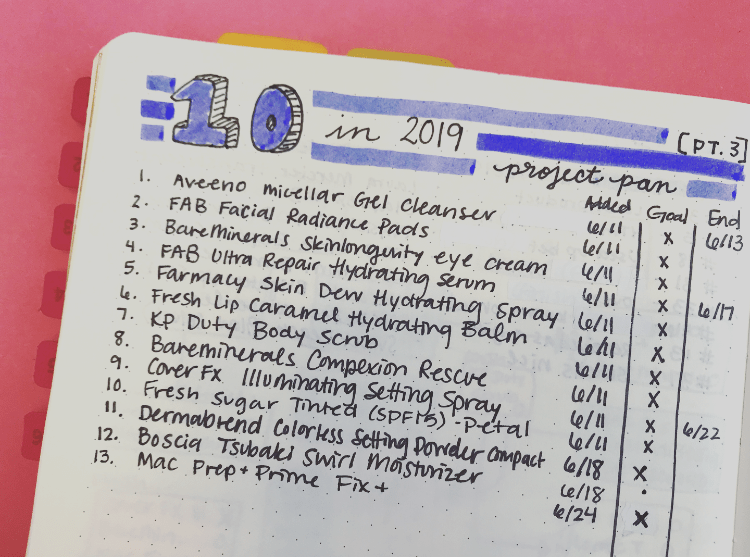 10 in 2019 [PT. 3]
project pan
Added Goal End
1. Aveeno micellar Gel cleanser 6/11 x 6/13
2. FAB Facial Radiance Pads 6/11 x
3. BareMinerals Skinlongevity eye cream 6/11 x
4. FAB Ultra Repair Hydrating Serum 6/11 x 6/17
5. Farmacy Skin Dew Hydrating Spray 6/11 x
6. Fresh Lip Caramel Hydrating Balm 6/11 x
7. KP Duty Body Scrub 6/11 x
8. Bareminerals Compexion Rescue 6/11 x
9. CoverFx Illuminating Setting Spray 6/11 x 6/22
10. Fresh Sugar Tinted (SPF15) - Petal 6/11 x
11. Dermablend Colorless Setting Powder Compact 6/18 x
12. Boscia Tsubaki Swirl Moisturizer 6/18 •
13. Mac Prep + Prime Fix + 6/24 x